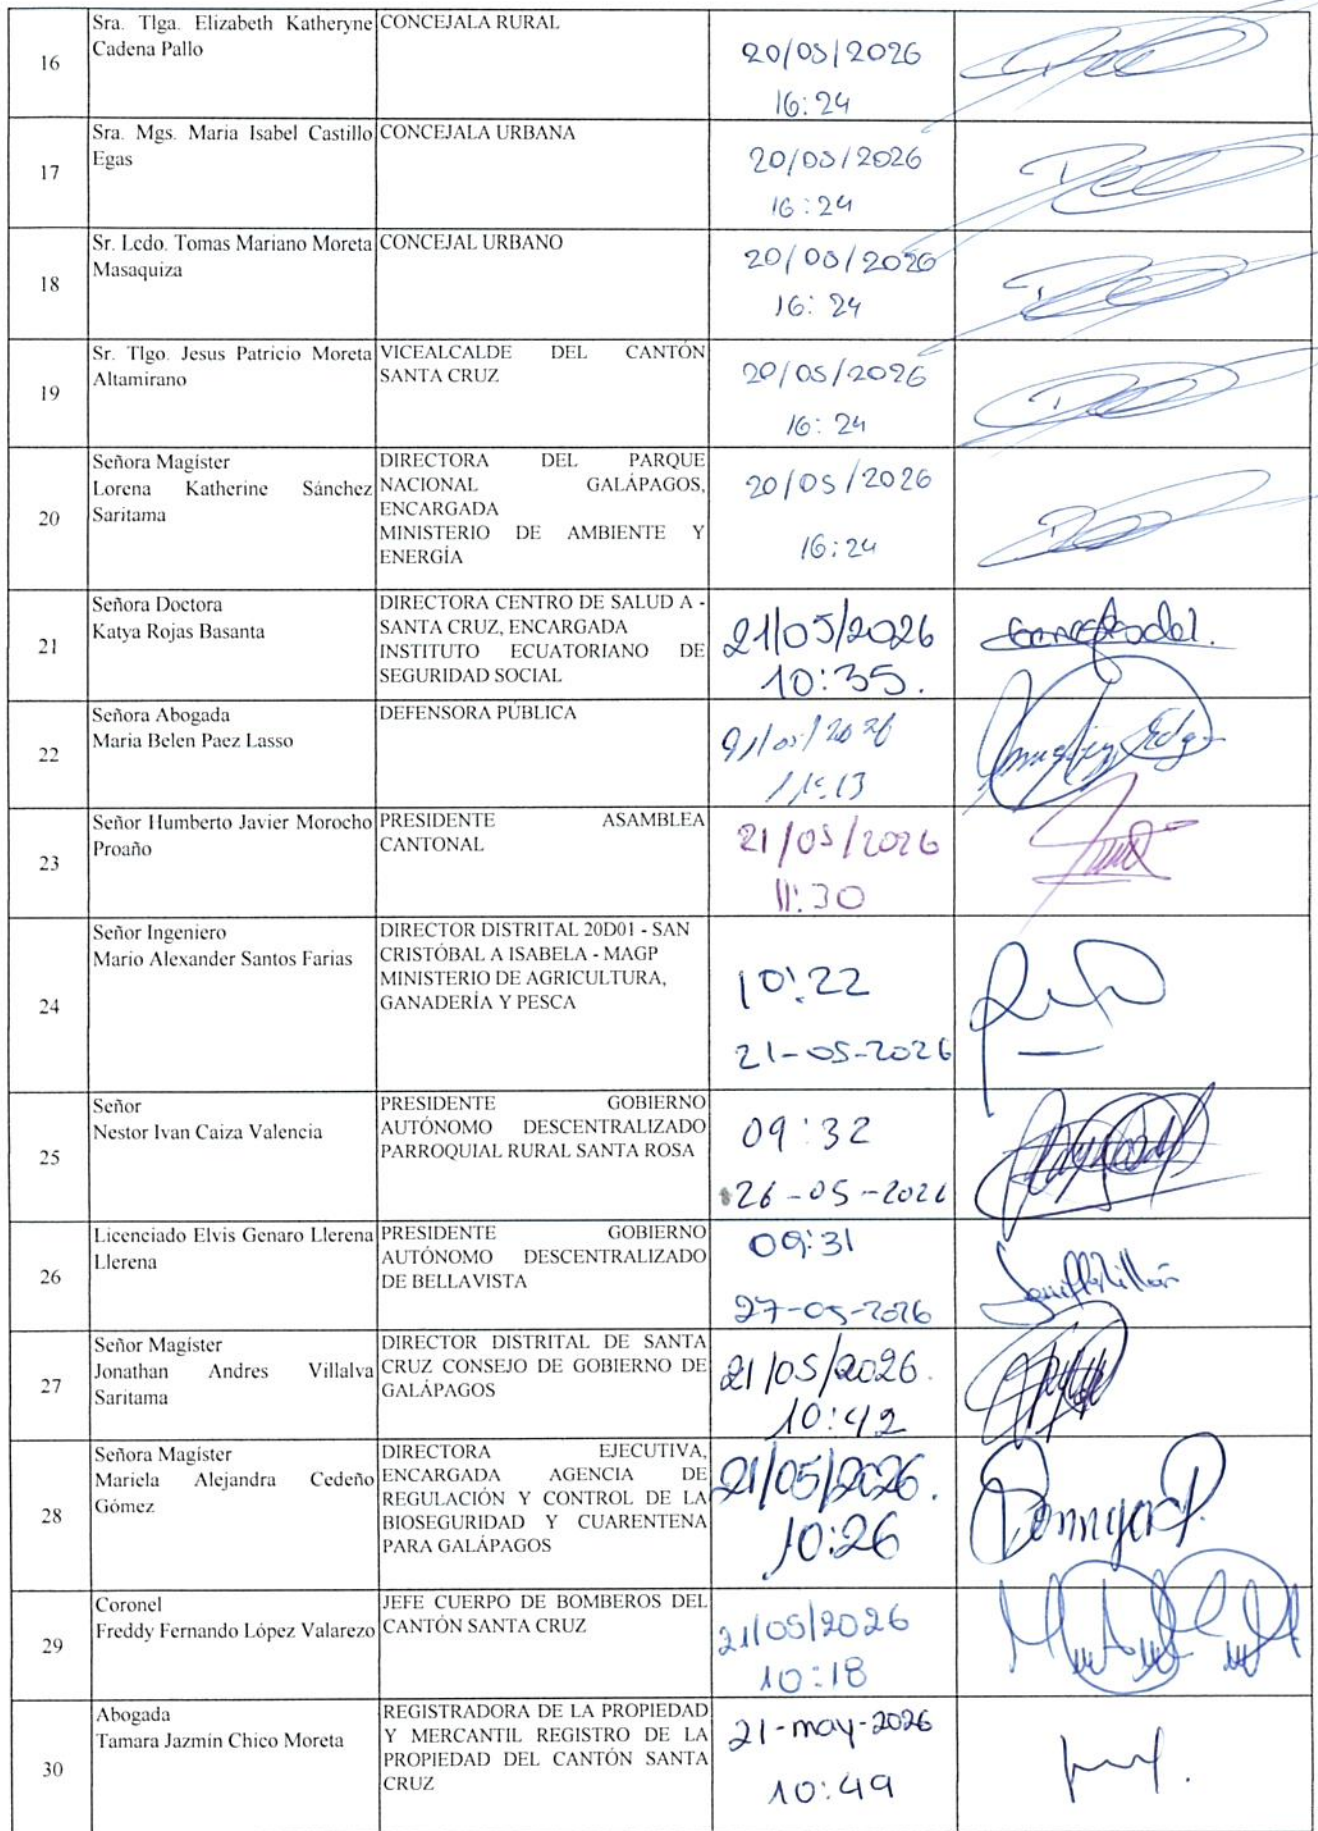 16
Sra. Tlga. Elizabeth Katheryne
Cadena Pallo
CONCEJALA RURAL
20/05/2026
16:24
17
Sra. Mgs. Maria Isabel Castillo
Egas
CONCEJALA URBANA
20/05/2026
16:24
18
Sr. Lcdo. Tomas Mariano Moreta
Masaquiza
CONCEJAL URBANO
20/05/2026
16:24
19
Sr. Tlgo. Jesus Patricio Moreta
Altamirano
VICEALCALDE DEL CANTÓN
SANTA CRUZ
20/05/2026
16:24
20
Señora Magíster
Lorena Katherine Sánchez
Saritama
DIRECTORA DEL PARQUE
NACIONAL GALÁPAGOS,
ENCARGADA
MINISTERIO DE AMBIENTE Y
ENERGÍA
20/05/2026
16:24
21
Señora Doctora
Katya Rojas Basanta
DIRECTORA CENTRO DE SALUD A -
SANTA CRUZ, ENCARGADA
INSTITUTO ECUATORIANO DE
SEGURIDAD SOCIAL
21/05/2026
10:35.
22
Señora Abogada
Maria Belen Paez Lasso
DEFENSORA PÚBLICA
21/05/2026
11:13
23
Señor Humberto Javier Morocho
Proaño
PRESIDENTE ASAMBLEA
CANTONAL
21/05/2026
11:30
24
Señor Ingeniero
Mario Alexander Santos Farias
DIRECTOR DISTRITAL 20D01 - SAN
CRISTÓBAL A ISABELA - MAGP
MINISTERIO DE AGRICULTURA,
GANADERÍA Y PESCA
10:22
21-05-2026
25
Señor
Nestor Ivan Caiza Valencia
PRESIDENTE GOBIERNO
AUTÓNOMO DESCENTRALIZADO
PARROQUIAL RURAL SANTA ROSA
09:32
26-05-2026
26
Licenciado Elvis Genaro Llerena
Llerena
PRESIDENTE GOBIERNO
AUTÓNOMO DESCENTRALIZADO
DE BELLAVISTA
09:31
27-05-2026
27
Señor Magíster
Jonathan Andres Villalva
Saritama
DIRECTOR DISTRITAL DE SANTA
CRUZ CONSEJO DE GOBIERNO DE
GALÁPAGOS
21/05/2026.
10:42
28
Señora Magíster
Mariela Alejandra Cedeño
Gómez
DIRECTORA EJECUTIVA,
ENCARGADA AGENCIA DE
REGULACIÓN Y CONTROL DE LA
BIOSEGURIDAD Y CUARENTENA
PARA GALÁPAGOS
21/05/2026.
10:26
29
Coronel
Freddy Fernando López Valarezo
JEFE CUERPO DE BOMBEROS DEL
CANTÓN SANTA CRUZ
21/05/2026
10:18
30
Abogada
Tamara Jazmín Chico Moreta
REGISTRADORA DE LA PROPIEDAD
Y MERCANTIL REGISTRO DE LA
PROPIEDAD DEL CANTÓN SANTA
CRUZ
21-may-2026
10:49